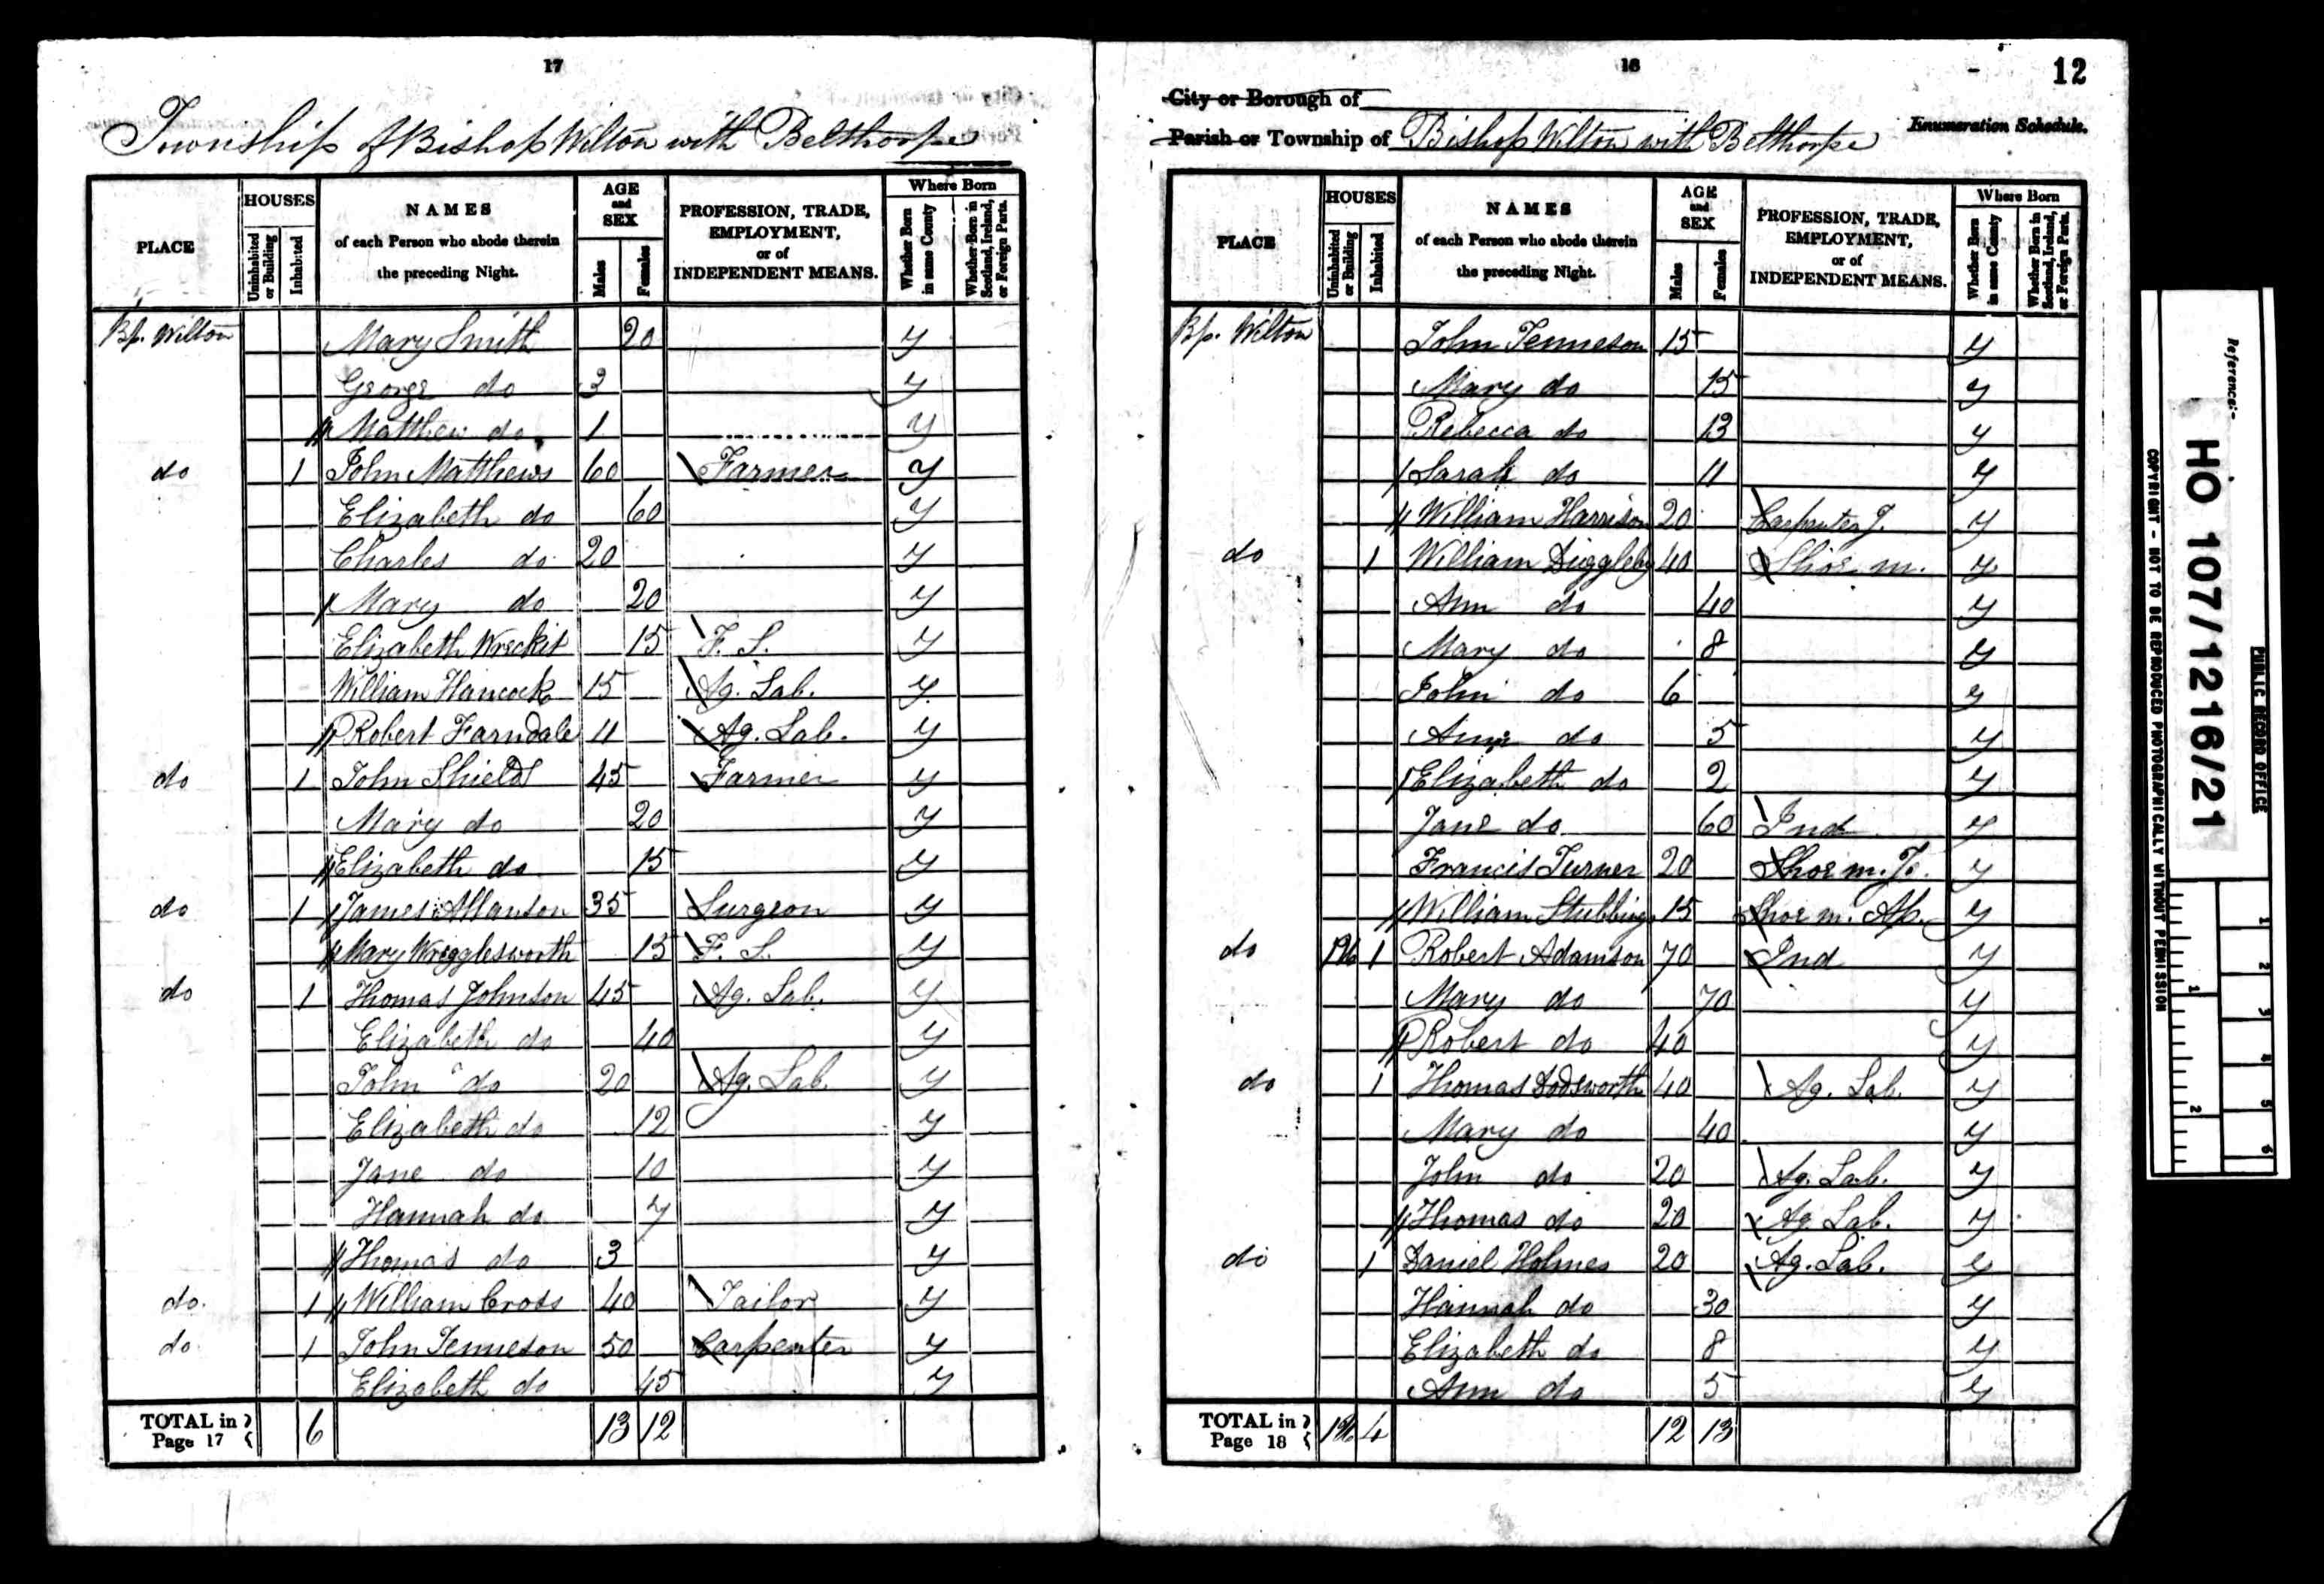 17
Township of Bishop Wilton with Belthorpe
PLACE
HOUSES
Uninhabited or Building
Inhabited
NAMES
of each Person who abode therein
the preceding Night.
AGE
and
SEX
Males
Females
PROFESSION, TRADE,
EMPLOYMENT,
or of
INDEPENDENT MEANS.
Where Born
Whether Born in same County
Whether Born in Scotland, Ireland, or Foreign Parts.
Bp. Wilton Mary Smith 20 y
George do 3 y
Matthew do 1 y
do 1 John Matthews 60 Farmer y
Elizabeth do 60 y
Charles do 20 y
Mary do 20 y
Elizabeth Wreckit 15 F. S. y
William Hancock 15 Ag. Lab. y
Robert Farndale 11 Ag. Lab. y
do 1 John Shields 45 Farmer y
Mary do 20 y
Elizabeth do 15 y
do 1 James Allanson 35 Surgeon y
Mary Wrigglesworth 15 F. S. y
do 1 Thomas Johnson 45 Ag. Lab. y
Elizabeth do 40 y
John do 20 Ag. Lab. y
Elizabeth do 12 y
Jane do 10 y
Hannah do 7 y
Thomas do 3 y
do 1 William Cross 40 Tailor y
do 1 John Jenneson 50 Carpenter y
Elizabeth do 45 y
TOTAL in Page 17 6 13 12
18
12
City or Borough of
Parish or Township of Bishop Wilton with Belthorpe
Enumeration Schedule.
PLACE
HOUSES
Uninhabited or Building
Inhabited
NAMES
of each Person who abode therein
the preceding Night.
AGE
and
SEX
Males
Females
PROFESSION, TRADE,
EMPLOYMENT,
or of
INDEPENDENT MEANS.
Where Born
Whether Born in same County
Whether Born in Scotland, Ireland, or Foreign Parts.
Bp. Wilton John Jenneson 15 y
Mary do 15 y
Rebecca do 13 y
Sarah do 11 y
William Harrison 20 Carpenter J. y
do 1 William Diggleby 40 Shoe m. y
Ann do 40 y
Mary do 8 y
John do 6 y
Ann do 5 y
Elizabeth do 2 y
Jane do 60 Ind y
Francis Turner 20 Shoe m. J. y
William Stubbings 15 Shoe m. Ap. y
do 1 Robert Adamson 70 Ind y
Mary do 70 y
Robert do 40 y
do 1 Thomas Dodsworth 40 Ag. Lab. y
Mary do 40 y
John do 20 Ag. Lab. y
Thomas do 20 Ag. Lab. y
do 1 Daniel Holmes 20 Ag. Lab. y
Hannah do 30 y
Elizabeth do 8 y
Ann do 5 y
TOTAL in Page 18 4 12 13
Reference:-
HO 107/1216/21
PUBLIC RECORD OFFICE
COPYRIGHT - NOT TO BE REPRODUCED PHOTOGRAPHICALLY WITHOUT PERMISSION
1 2
1 2 3 4 5 6